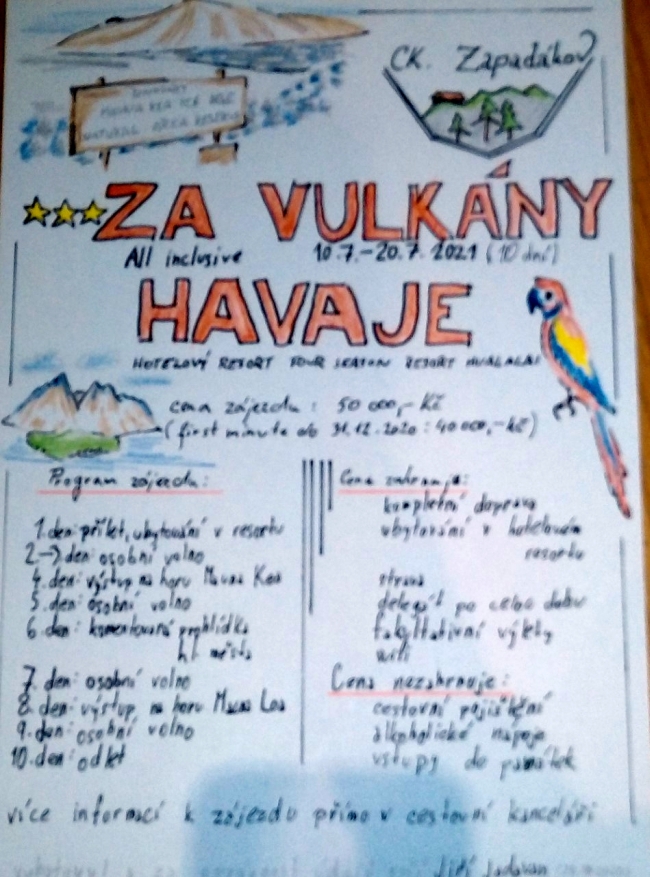 CK. Zapadákov
MAUNA KEA ICE AGE
NATURAL AREA RESERVE
ZA VULKÁNY
All inclusive 10.7.-20.7. 2021 (10 dní)
HAVAJE
HOTELOVÝ RESORT FOUR SEASON RESORT HUALALAI
cena zájezdu : 50 000,- Kč
(first minute do 31.12.2020 : 40 000,-kč)
Program zájezdu:
1.den: přílet, ubytování v resortu
2.→3.den: osobní volno
4.den: výstup na horu Mauna Kea
5.den: osobní volno
6.den: komentovaná prohlídka
hl. města
7. den: osobní volno
8. den: výstup na horu Mauna Loa
9.den: osobní volno
10.den: odlet
Cena zahrnuje:
kompletní doprava
ubytování v hotelovém
resortu
strava
delegát po celou dobu
fakultativní výlety
wifi
Cena nezahrnuje:
cestovní pojištění
alkoholické nápoje
vstupy do památek
více informací k zájezdu přímo v cestovní kanceláři
Jiří